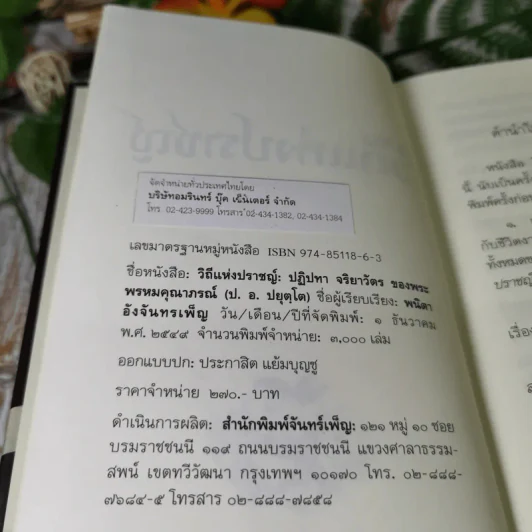 จัดจำหน่ายทั่วประเทศไทยโดย
บริษัทอมรินทร์ บุ๊ค เซ็นเตอร์ จำกัด
โทร. 02-423-9999 โทรสาร 02-434-1382, 02-434-1384
เลขมาตรฐานหมู่หนังสือ ISBN 974-85118-6-3
ชื่อหนังสือ: วิถีแห่งปราชญ์: ปฏิปทา จริยาวัตร ของพระ
พรหมคุณาภรณ์ (ป. อ. ปยุตฺโต) ชื่อผู้เรียบเรียง: พนิตา
อังจันทรเพ็ญ วัน/เดือน/ปีที่จัดพิมพ์: ๑ ธันวาคม
พ.ศ. ๒๕๔๙ จำนวนพิมพ์จำหน่าย: ๓,๐๐๐ เล่ม
ออกแบบปก: ประกาสิต แย้มบุญชู
ราคาจำหน่าย ๒๗๐.- บาท
ดำเนินการผลิต: สำนักพิมพ์จันทร์เพ็ญ: ๑๒๑ หมู่ ๑๐ ซอย
บรมราชชนนี ๑๑๙ ถนนบรมราชชนนี แขวงศาลาธรรม-
สพน์ เขตทวีวัฒนา กรุงเทพฯ ๑๐๑๗๐ โทร. ๐๒-๘๘๘-
๗๖๘๔-๕ โทรสาร ๐๒-๘๘๘-๗๘๕๘
หนังสือ
นี้ นับเป็นครั้ง
พิมพ์ครั้งก่อน
๑.
กับชีวิตงา
ทั้งหมดข
ปราชญ
เรื่อง